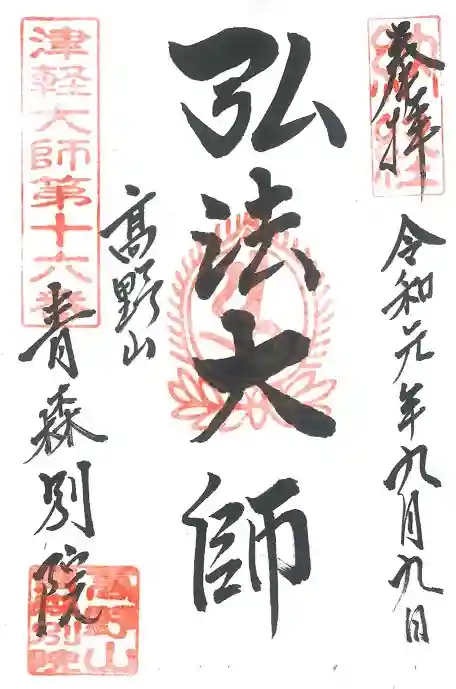 奉拝
令和元年九月九日
弘法大師
高野山
青森別院
津軽大師第十六番
高野山